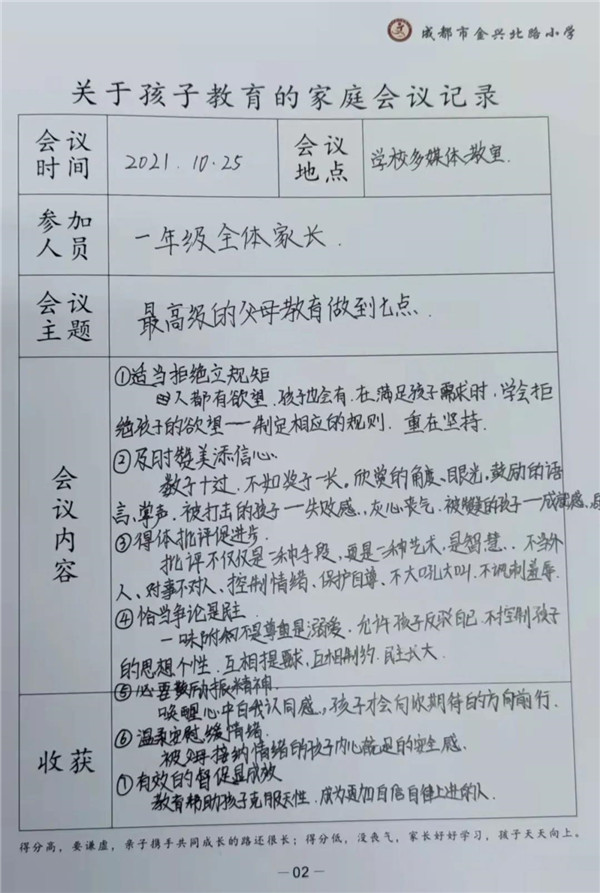 成都市金兴北路小学
关于孩子教育的家庭会议记录
会议时间
2021.10.25
会议地点
学校多媒体教室.
参加人员
一年级全体家长.
会议主题
最高级的父母教育做到七点.
会议内容
①适当拒绝立规矩
人都有欲望.孩子也会有.在满足孩子需求时,学会拒
绝孩子的欲望——制定相应的规则.重在坚持.
②及时赞美添信心.
数子十过.不如奖子一长.欣赏的角度、眼光,鼓励的语
言,掌声.被打击的孩子—失败感,灰心丧气.被赞的孩子—成就感,
③得体批评促进步.
批评不仅仅是一种手段,更是一种艺术,是智慧..不当外
人、对事不对人、控制情绪、保护自尊、不大吼大叫.不讽刺羞辱.
④恰当争论是民主.
一味附和不是尊重是溺爱.允许孩子反驳自己.不控制孩子
的思想个性.互相提要求,互相制约.民主长大.
⑤必要鼓励振精神.
唤醒心中自我认同感,孩子才会向你期待的方向前行.
收获
⑥温柔安慰缓情绪.
被父母接纳情绪的孩子内心有足够的安全感.
⑦有效的督促显成效
教育帮助孩子克服天性.成为更加自信自律上进的人.
得分高,要谦虚,亲子携手共同成长的路还很长;得分低,没丧气,家长好好学习,孩子天天向上。
—02—